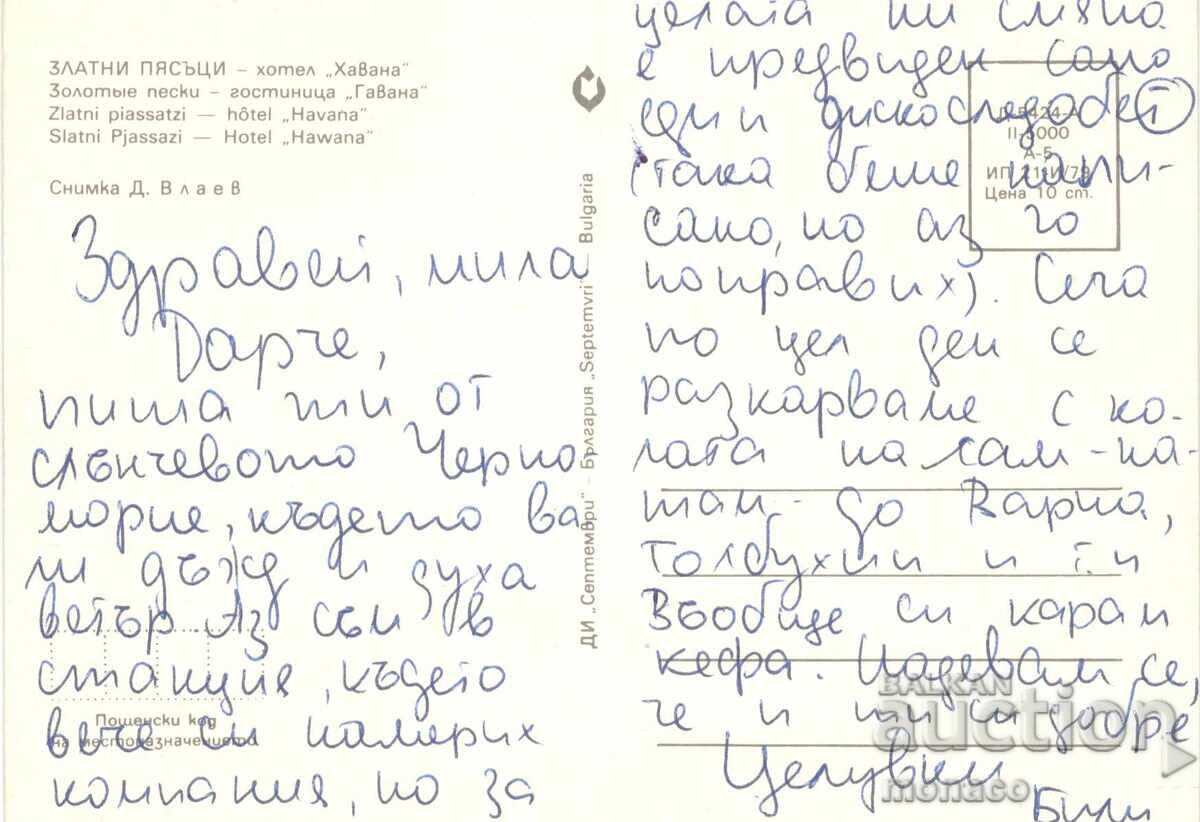 ЗЛАТНИ ПЯСЪЦИ – хотел „Хавана"
Золотые пески – гостиница „Гавана"
Zlatni piassatzi — hôtel „Havana"
Slatni Pjassazi — Hotel „Hawana"
Снимка Д. Влаев
Здравей, мила
Дарче,
пиша ти от
слънчевото Черно
морие, където ва
ли дъжд и духа
ветър Аз съм в
станция, където
вече и намерих
компания, но за
Пощенски код
на местоназначението
ДИ „Септември" – България „Septemvri" Bulgaria
целата ни смяна
е предвиден само
един дискоследобет
(така беше напи-
сано, но аз го
поправих). Сега
по цел ден се
разкарваме с ко-
лата на сам-на-
там- до Варна,
Толбухин и т.н
Въобще си карам
кефа. Надевам се,
че и ти си добре
Целувки
Били
II-5000
А-5
Цена 10 ст.
BALKAN
auction
monaco